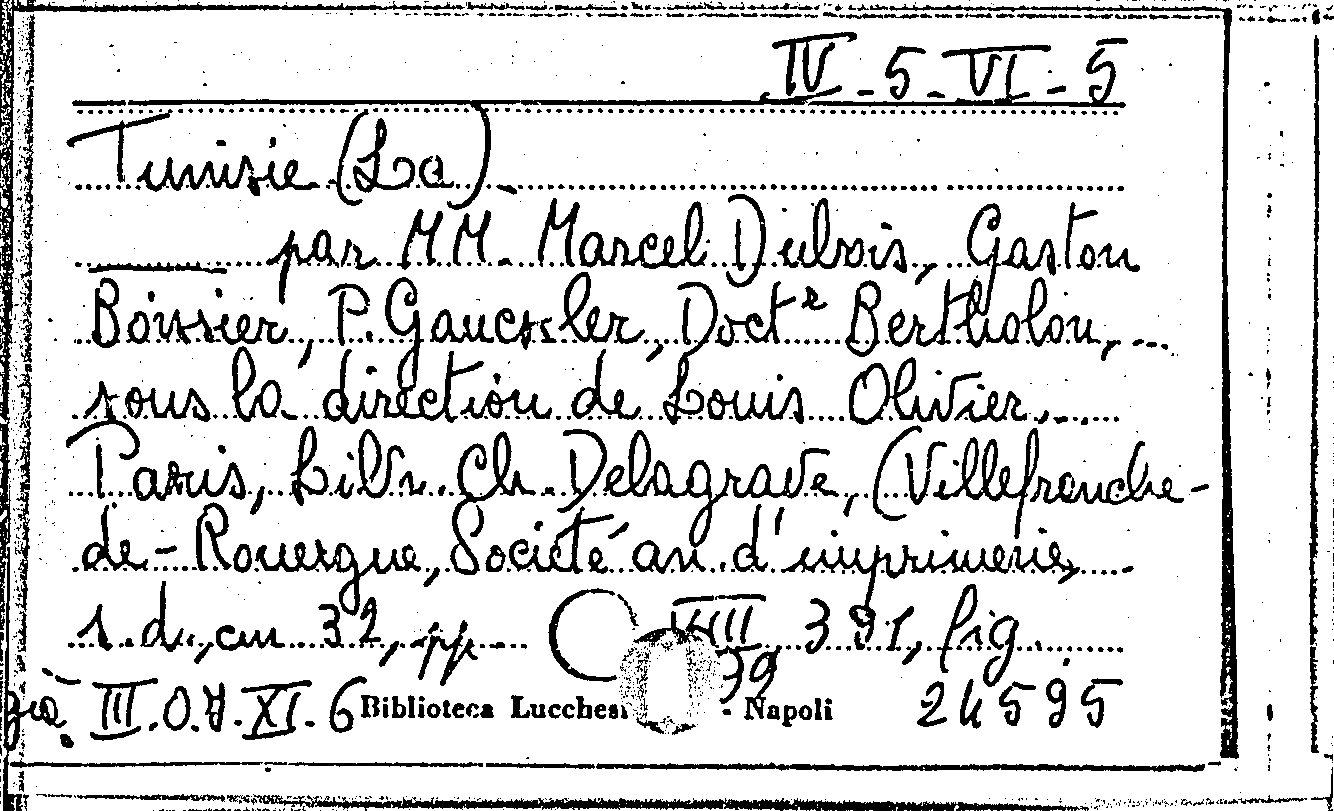 IV - 5 - VI - 5
Tunisie (La)
par MM. Marcel Dubois, Gaston
Boissier, P. Gauckler, Doct.r Bertholon, ...
sous la direction de Louis Olivier....
Paris, Libr. Ch. Delagrave, (Villefranche-
de-Rouergue, Société an. d'imprimerie,
s. d., cm 32, pp. VIII 391, fig.
già III.O.A.XI.6 Biblioteca Lucchesi - Napoli 24595